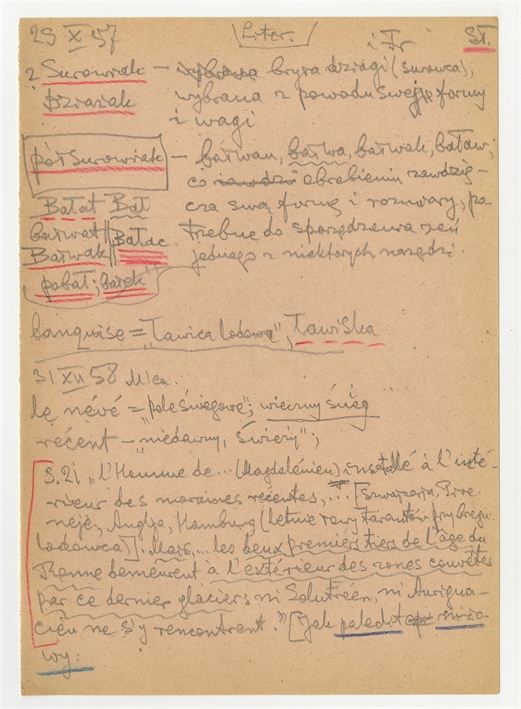 29 X 57 Liter. i Tr St.
? Surowiak – wybrana bryła dziagi (surowca),
Dziaziak wybrana z powodu swej formy
i wagi
półsurowiak – bałwan, bałwa, bałwak, bałdaw;
co obrobieniu zawdzię-
Bałat Bał cza swą formę i rozmiary, po-
bałwat || Bałac trzebne do sporządzenia zeń
Bałwak || jednego z niektórych narzędzi.
pobał; bałek
banquise = "Ławica lodowa", Ławiska
31 XII 58
le névé = "pole śniegowe"; wieczny śnieg
récent – "niedawny, świeży";
S. 21 "l'Homme de ... (Magdalénien) installé à l'inté-
rieur des moraines récentes, ... [Szwajcaria, Pire-
neje, Anglja, Hamburg (letnie przy brzegu
lodowca)]. Mais, ... les deux premiers tiers de l'âge du
Renne demeurent à l'extérieur des zones couvertes
par ce dernier glacier; ni Solutréen, ni Aurigna-
cien ne s'y rencontrent." [Jak paleolit niżo-
wy.